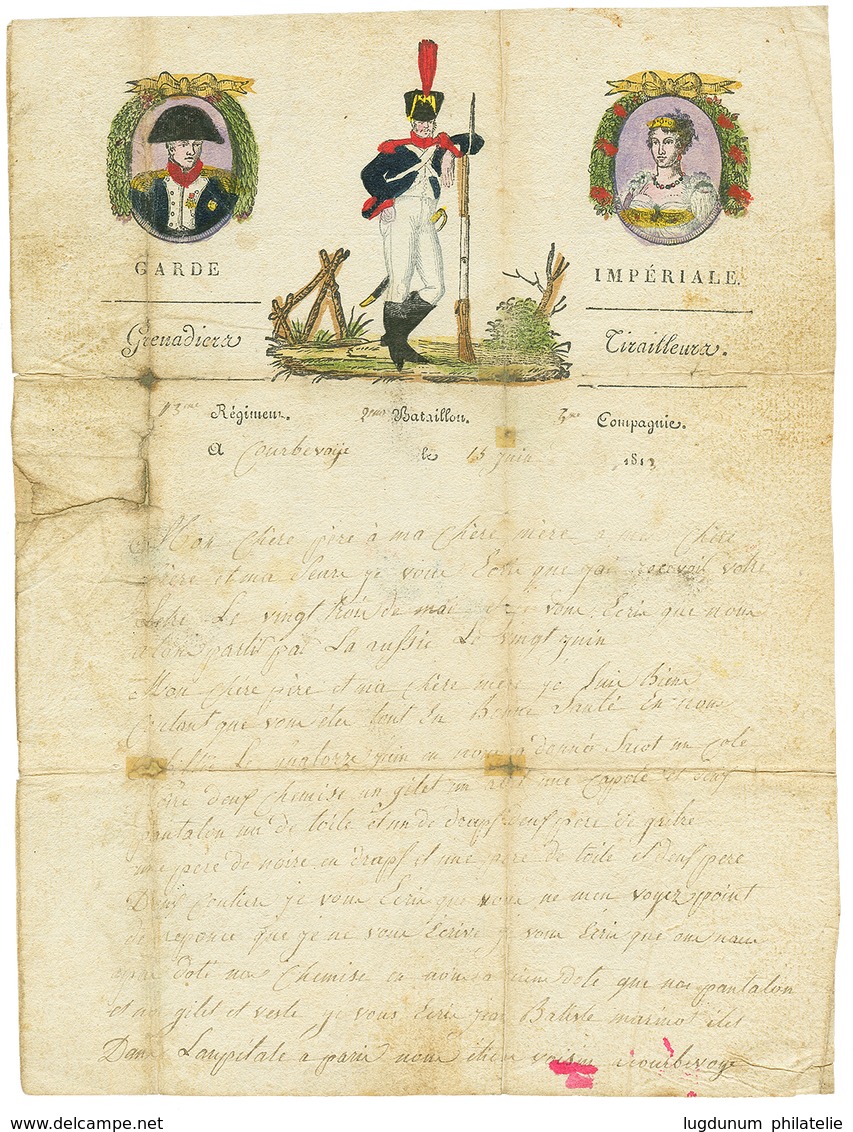 GARDE IMPÉRIALE.
Grenadiers Tirailleurs.
Régiment. 2eme Bataillon. Compagnie.
A Courbevoye le 15 juin 1813
Mon chère père à ma chère mère a ma chère
frère et ma Seure je vous Ecris que jai recevoil votre
Letre Le vingt trois de mai je vous Ecris que nous
partir par La russie Le vingt juin
Mon chère père et ma chère mère je Suis Bien
Contant que vous ête tout En Bonne Santé En nous
Le quatorze juin on nous a donnés Sacot un Colé
noire deus Chemise un gilet un une Capote et deus
pantalon un de toile et un de draps deus père de guitre
une père de noire en draps et une père de toile et deus pere
De Soulier je vous Ecris que vous ne men voyez point
de reponce que je ne vous Ecrive je vous Ecris que on nous
pas doté nos Chemise on nous a rien doté que nos pantalon
et nos gilet et veste je vous Ecris Jean Batiste marinot
Dans Laupitale a paris nom voisin a courbevoye
delcampe.net
lugdunum philatelie